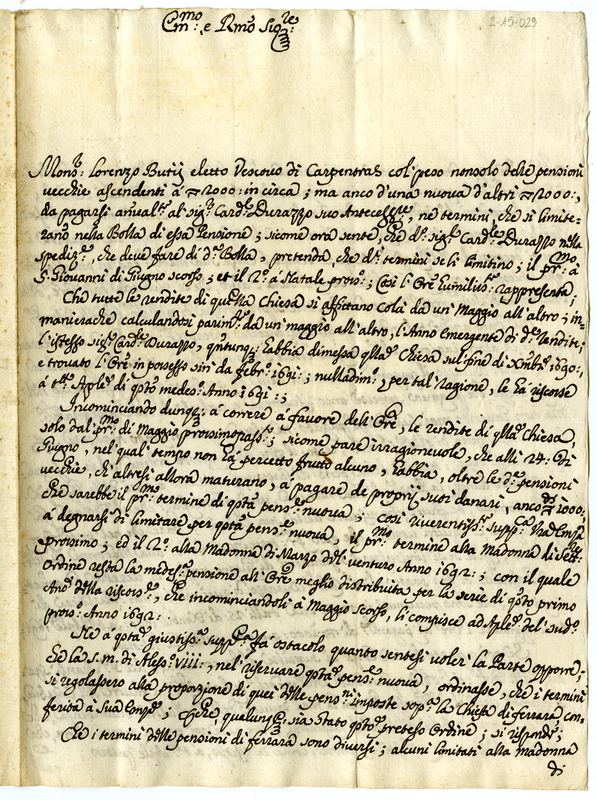 2-15-029
Em:mo e Rmo Sigre:
Monsr: Lorenzo Butij eletto Vescovo di Carpentras col' peso nonsolo delle pensioni
vecchie ascendenti a 2000: in circa; ma anco d'una nuova d'altri 2000:,
da pagarsi annealte: al sigr: Cardle: Durazzo suo Antecessre, ne termini, che si limite-
rano nella Bolla di essa Pensione; sicome ora sente, che do: sigr: Cardle: Durazzo nella
spedize:, che deve fare di da: Bolla, pretenda, che di: termini se li limitino; il pr:mo a
S: Giovanni di Giugno scorso; et il 2o: a Natale pross:o; Così l'Ore humiliso: rappresenta,
Che tutte le rendite di questa Chiesa si affittano colà da un' Maggio all' altro; in-
manierache calcolandosi parimte: da un' maggio all' altro, l'Anno emergente di de: rendite,
l'istesso sigr: Cardle: Durazzo, qntunqe: habbia dimessa qlla Chiesa sul' fine di Xmbre: 1690:,
e trovato l'Ore in possesso sin' da febro: 1691:; nulladimo:, per tal' ragione, le ha riscosse
a tto: Aple: di qsto medeso: Anno 1691:;
Incominciando dunqe: a correre a favore dell' Ore, le rendite di qlla Chiesa,
solo dal' pr:mo di Maggio prossimopasso:; sicome pare irragionevole, che alli 24. di
Giugno, nel qual' tempo non ha percetto frutto alcuno, habbia, oltre le de: pensioni
vecchie, ch' altresi allora maturano, a pagare de proprij suoi danari, anco di 1000:
che sarebbe il pr:mo termine di qsta pense: nuova; così riverentisse: suppca: Vra Emza
a degnarsi di limitare per qsta pense: nuova, il pr:mo termine alla Madonna di Sett:re
prossimo; ed il 2o: alla Madonna di Marzo del' venturo Anno 1692:; con il quale
ordine resta la medesa: pensione all' Ore meglio distribuita per la serie di qsto primo
Ano: della riscosse:, che incominciandoli a Maggio scorso, li compisce ad Aple: del' sudo:
pross:o Anno 1692:
Ne a qsta giustissa: suppca: fa ostacolo quanto sentesi voler' la Parte opporre;
che la S. m. di Aless:o VIII:, nel' riservare qsta pense: nuova, ordinasse, che i termini
si regolassero alla proporzione di quei delle pensni: imposte sopa: la Chiesa di ferrara con-
ferita a Sua Emza; Perche, qualunqe: sia stato qsto preteso Ordine; si risponde;
Che i termini delle pensioni di ferrara sono diversi; alcuni limitati alla Madonna
di